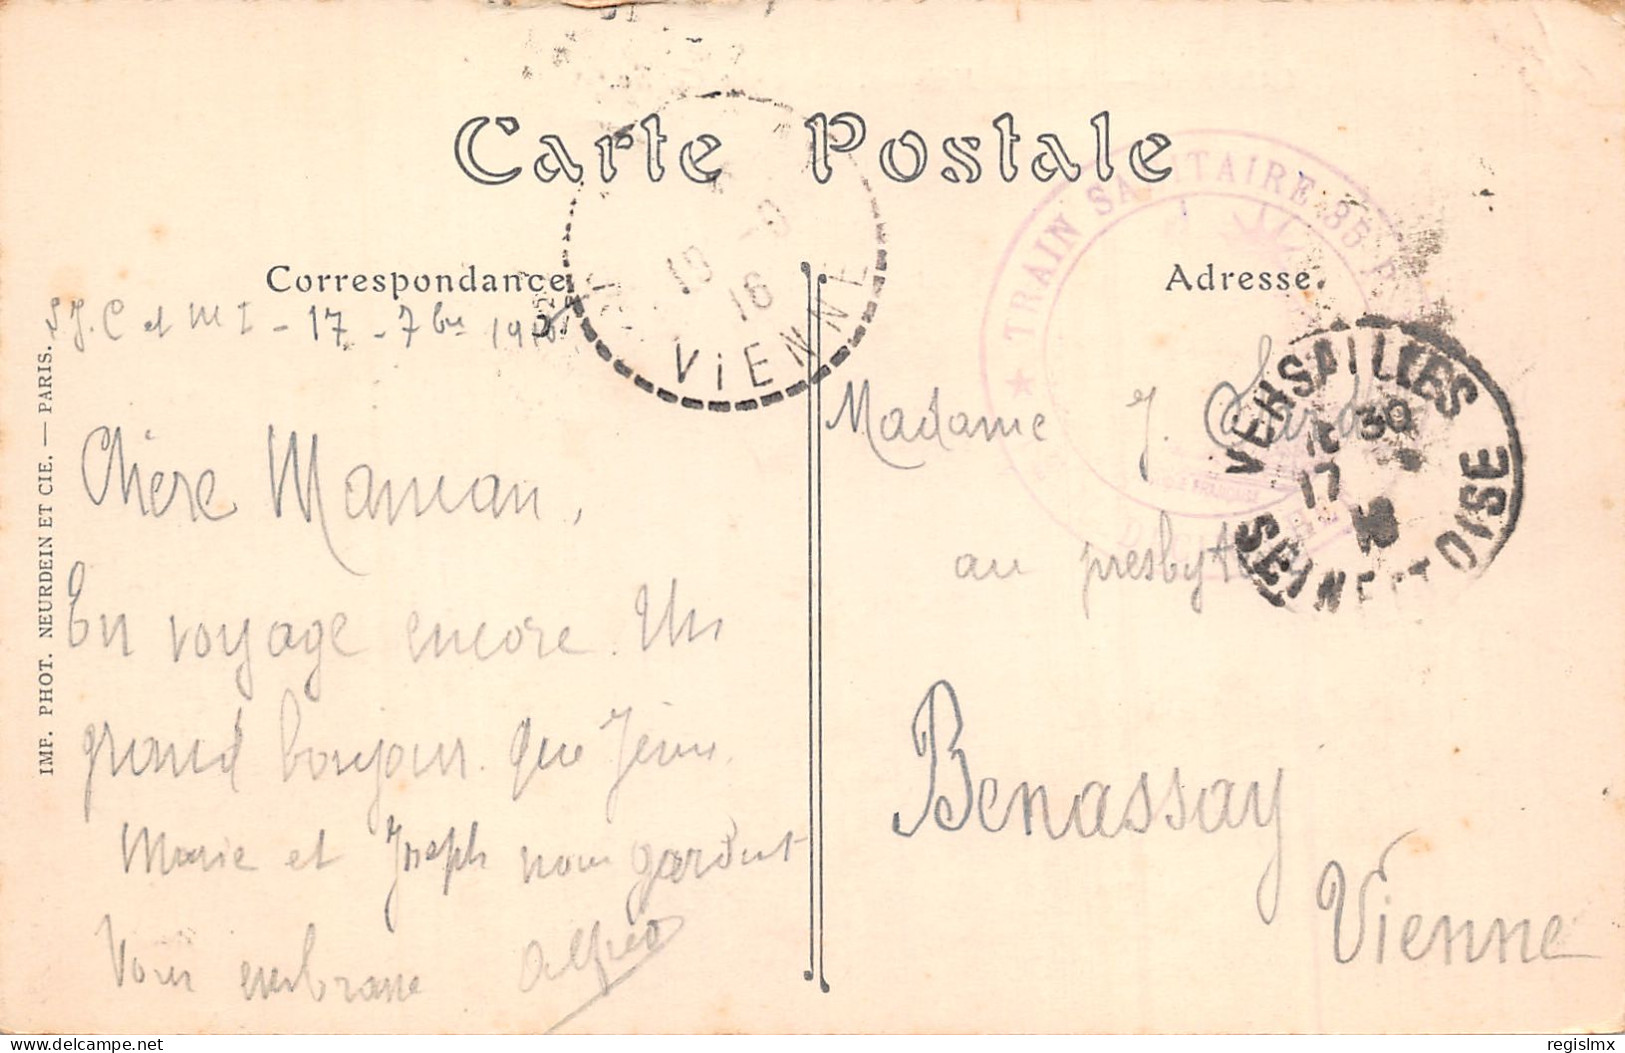 Carte Postale
Correspondance
Adresse.
IMP. PHOT. NEURDEIN ET CIE. — PARIS.
TRAIN SANITAIRE
VIENNE
16
VERSAILLES
30
17
SEINE ET OISE
17 - 7bre 1916
Chère Maman,
En voyage encore. Un
grand bonjour. Que Jésus
Marie et Joseph nous gardent
Vous embrasse Alfred
Madame J.
au presbytère
Benassay
Vienne
delcampe.net
regislmx